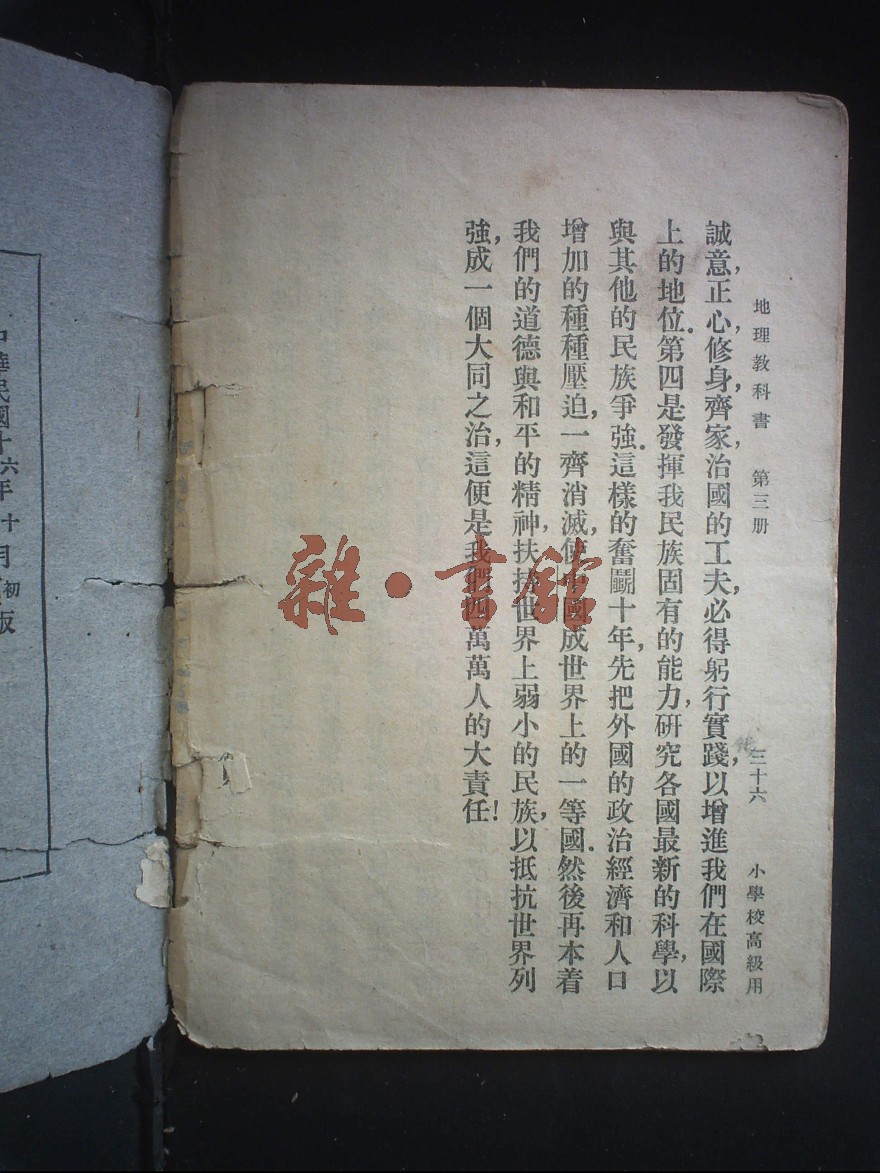 地理教科書 第三册 三十六 小學校高級用
誠意,正心,修身,齊家,治國的工夫,必得躬行實踐,以增進我們在國際
上的地位.第四是發揮我民族固有的能力,研究各國最新的科學,以
與其他的民族爭強.這樣的奮鬭十年,先把外國的政治經濟和人口
增加的種種壓迫,一齊消滅,使中國成世界上的一等國.然後再本着
我們的道德與和平的精神,扶持世界上弱小的民族,以抵抗世界列
強,成一個大同之治,這便是我們四萬萬人的大責任!
雜·書館
中華民國十六年十月初版